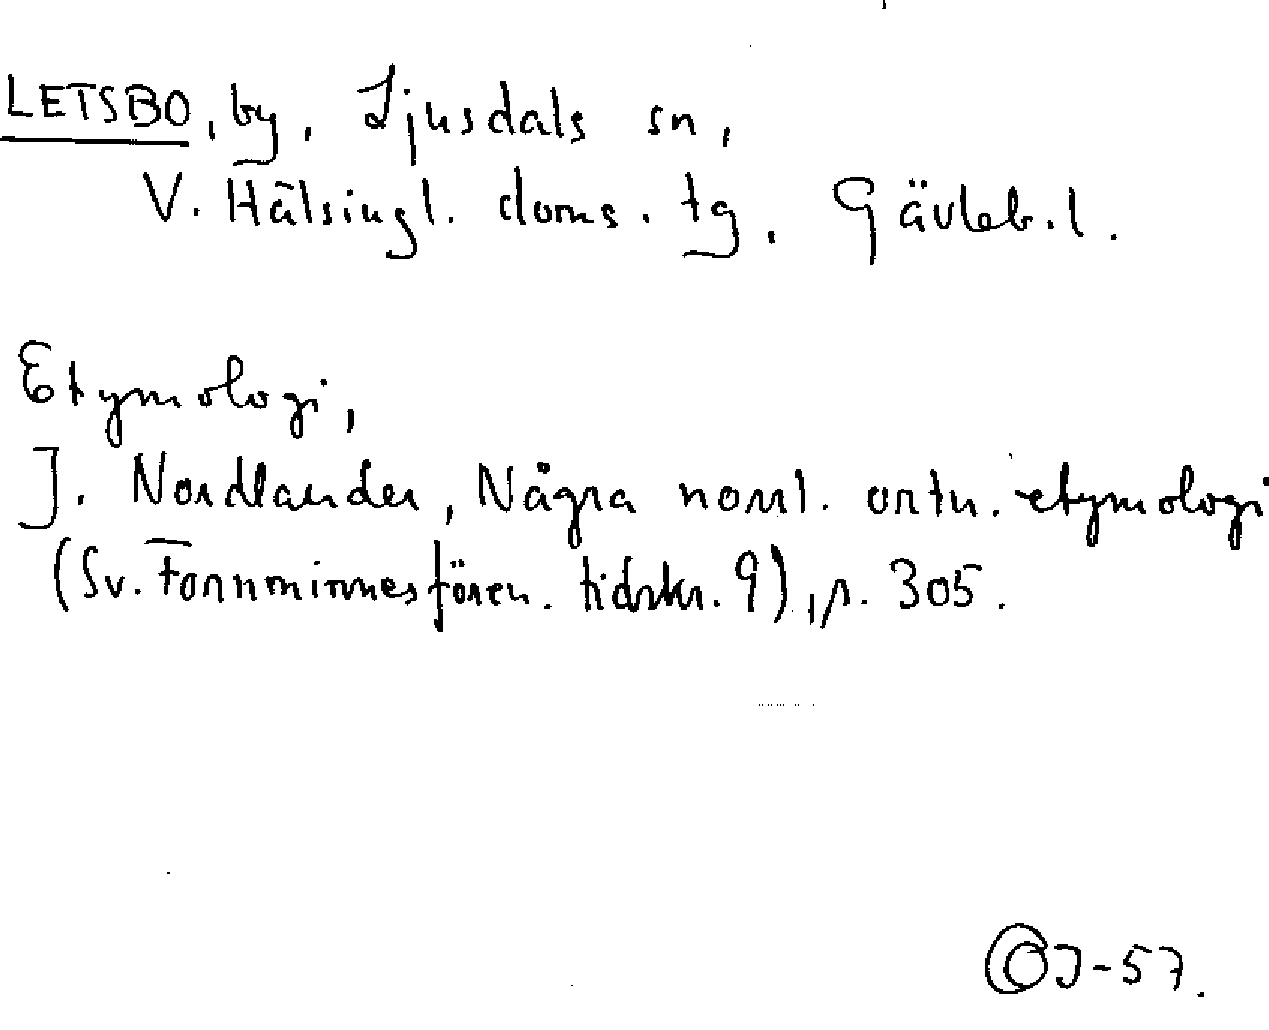 LETSBO, by, Ljusdals sn,
V. Hälsingl. doms. tg. Gävleb.l.
Etymologi,
J. Nordlander, Några norrl. ortn. etymologi
(Sv. Fornminnesfören. tidskr. 9), s. 305.
OJ-57.